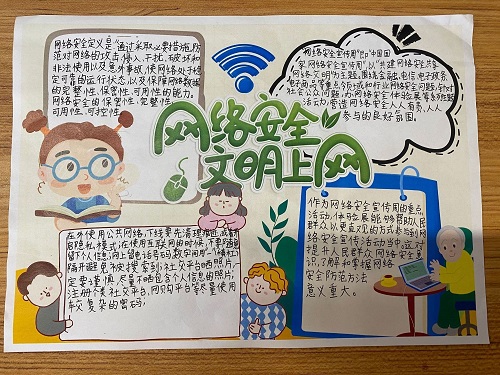 网络安全定义是"通过采取必要措施,防
范对网络的攻击、侵入、干扰、破坏和
非法使用以及意外事故,使网络处于稳
定可靠的运行状态,以及保障网络数据
的完整性、保密性、可用性的能力。
网络安全的保密性、完整性、
可用性、可控性
网络安全宣传周"即"中国国
家网络安全宣传周",以"共建网络安全,共享
网络文明"为主题,围绕金融、电信、电子政务、
电子商务等重点领域和行业网络安全问题,针对
社会公众问题,办网络安全体验展等系列主题
活动,营造网络安全人人有责、人人
参与的良好氛围。
网络安全
文明上网
在外使用公共网络,下线要先清理痕迹,或者
启隐私模式;在使用互联网的时候,不要随意
留下个人信息,网上留电话号码,数字间用"-"
隔开避免被搜索到;社交平台晒照片,
一定要谨慎,尽量不晒包含个人信息的照片;
注册个类社交平台、网购平台等尽量使用
复杂的密码;
作为网络安全宣传周的重点
活动,体验展能够帮助人民
群众以更直观的方式参与到
网络安全宣传活动当中,这对
提升人民群众网络安全意
识,了解和掌握网络
安全防范方法
意义重大。